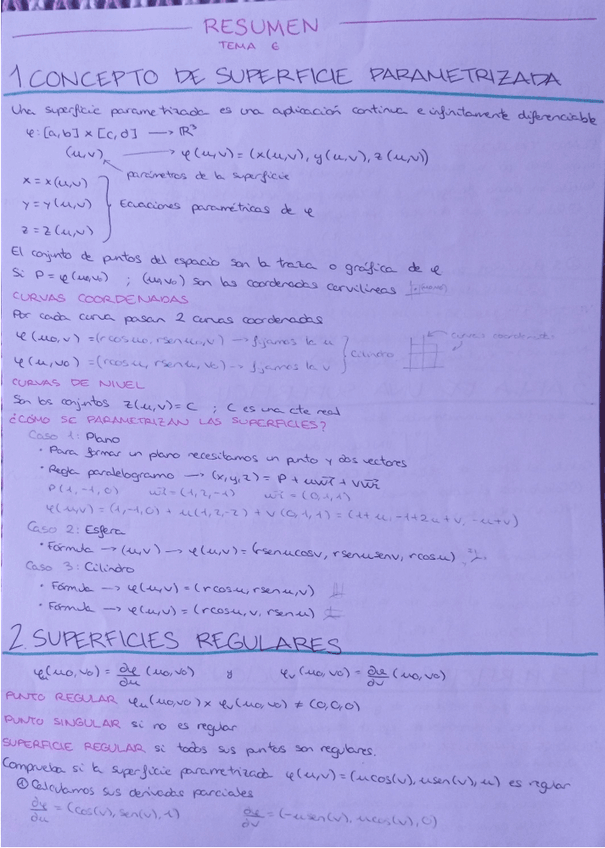 RESUMEN
TEMA 6
1 CONCEPTO DE SUPERFICIE PARAMETRIZADA
Una superficie parametrizada es una aplicación continua e infinitamente diferenciable
φ: [a,b] x [c,d] → ℝ³
(u,v) → φ(u,v) = (x(u,v), y(u,v), z(u,v))
parámetros de la superficie
x = x(u,v)
y = y(u,v) } Ecuaciones paramétricas de φ
z = z(u,v)
El conjunto de puntos del espacio son la traza o gráfica de φ
Si P = φ(u₀,v₀) ; (u₀,v₀) son las coordenadas curvilíneas
CURVAS COORDENADAS
Por cada curva pasan 2 curvas coordenadas
φ(u₀,v) = (rcosu₀, rsenu₀, v) → fijamos la u
φ(u,v₀) = (rcosu, rsenu, v₀) → fijamos la v } Cilindro
curvas coordenadas
CURVAS DE NIVEL
Son los conjuntos z(u,v) = C ; C es una cte real
¿CÓMO SE PARAMETRIZAN LAS SUPERFICIES?
Caso 1: Plano
• Para formar un plano necesitamos un punto y dos vectores
• Regla paralelogramo → (x,y,z) = P + uw₁ + vw₂
P(1,-1,0) w₁ = (1,2,-1) w₂ = (0,1,1)
φ(u,v) = (1,-1,0) + u(1,2,-2) + v(0,1,1) = (1+u, -1+2u+v, -u+v)
Caso 2: Esfera
• Fórmula → (u,v) → φ(u,v) = (rsenucosv, rsenusenv, rcosu)
Caso 3: Cilindro
• Fórmula → φ(u,v) = (rcosu, rsenu, v)
• Fórmula → φ(u,v) = (rcosu, v, rsenu)
2. SUPERFICIES REGULARES
φu(u₀,v₀) = ∂φ/∂u (u₀,v₀) y φv(u₀,v₀) = ∂φ/∂v (u₀,v₀)
PUNTO REGULAR φu(u₀,v₀) x φv(u₀,v₀) ≠ (0,0,0)
PUNTO SINGULAR si no es regular
SUPERFICIE REGULAR si todos sus puntos son regulares.
Comprueba si la superficie parametrizada φ(u,v) = (ucos(v), usen(v), u) es regular
① Calculamos sus derivadas parciales
∂φ/∂u = (cos(v), sen(v), 1) ∂φ/∂v = (-usen(v), ucos(v), 0)